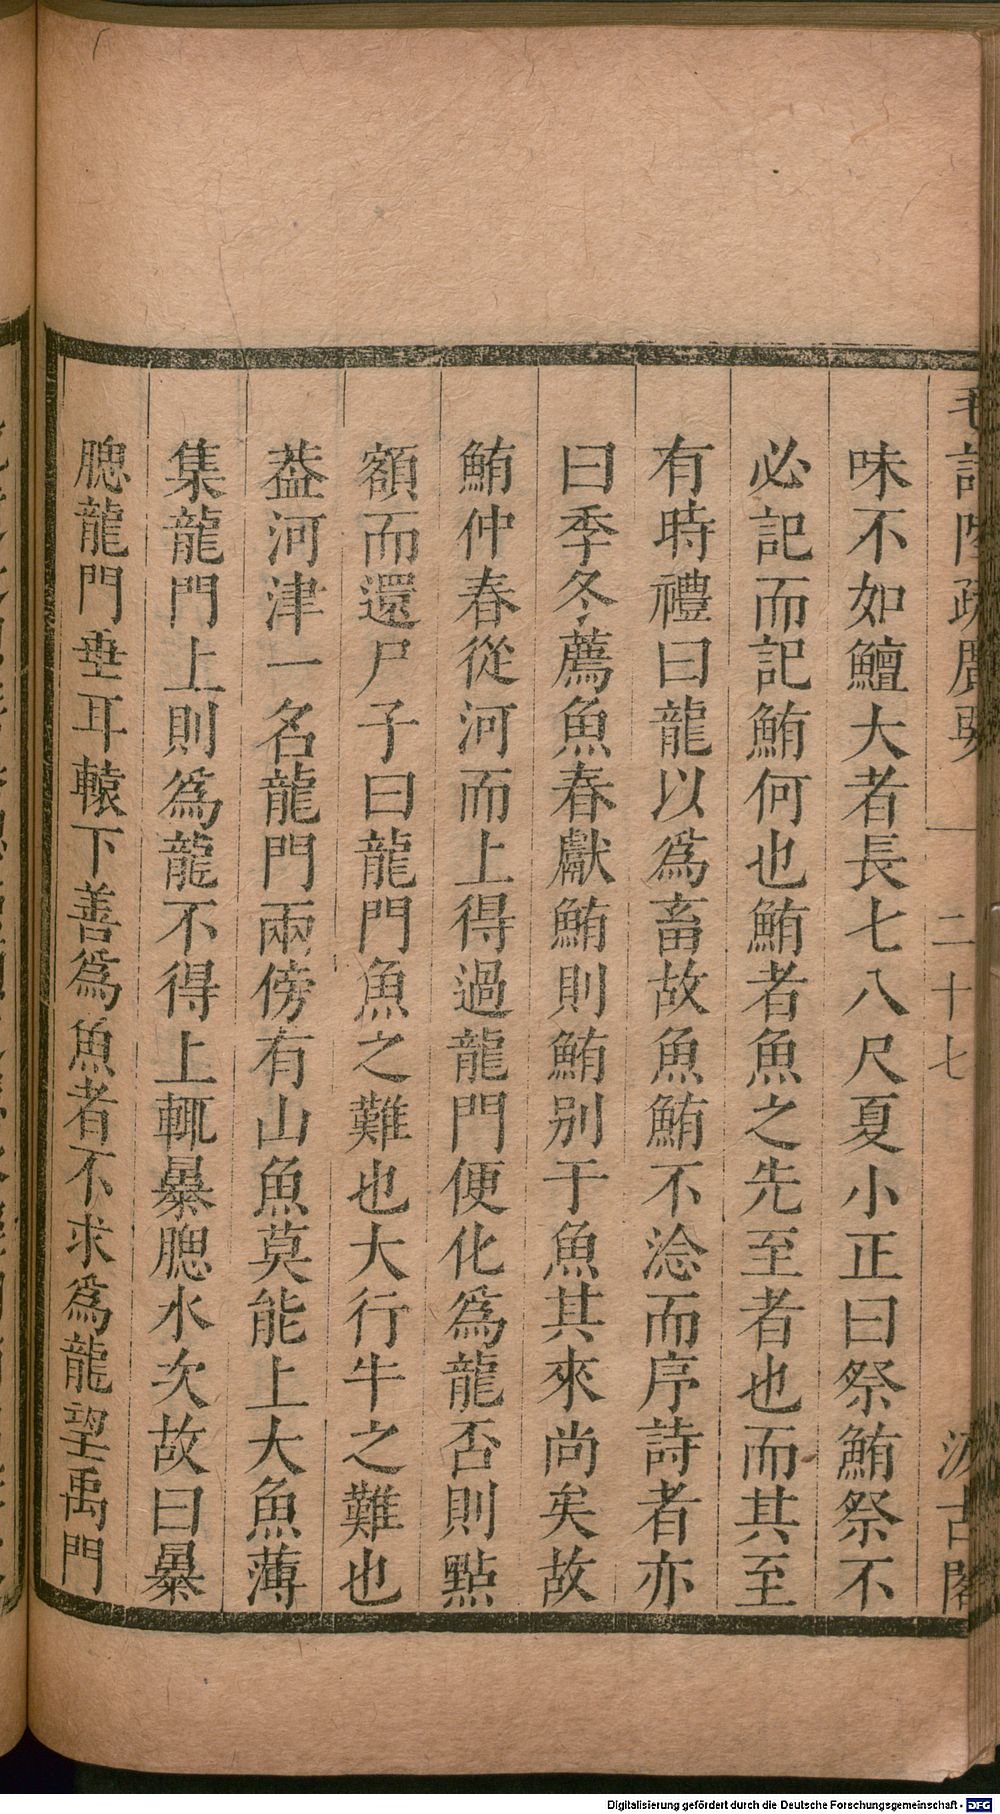 毛詩陸疏廣要 二十七 汲古閣
味不如鱣大者長七八尺夏小正曰祭鮪祭不
必記而記鮪何也鮪者魚之先至者也而其至
有時禮曰龍以為畜故魚鮪不淰而序詩者亦
曰季冬薦魚春獻鮪則鮪別于魚其來尚矣故
鮪仲春從河而上得過龍門便化為龍否則點
額而還尸子曰龍門魚之難也大行牛之難也
葢河津一名龍門兩傍有山魚莫能上大魚薄
集龍門上則為龍不得上輒暴腮水次故曰暴
腮龍門垂耳轅下善為魚者不求為龍望禹門
Digitalisierung gefördert durch die Deutsche Forschungsgemeinschaft - DFG